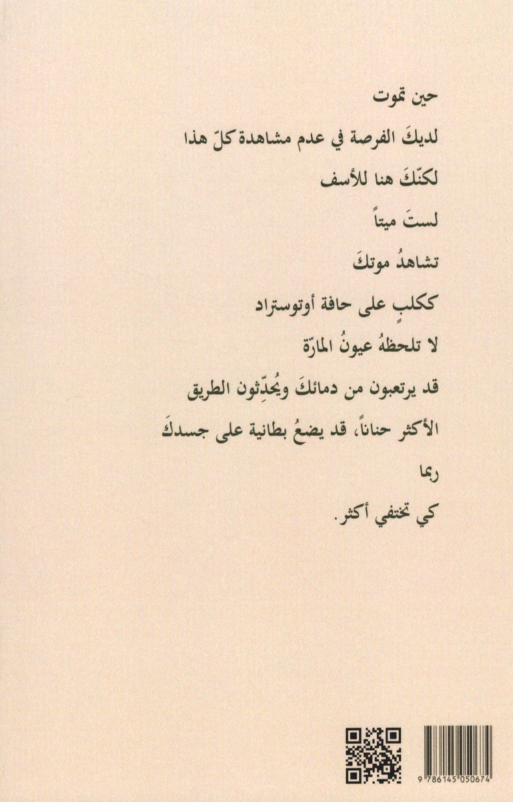 حين تموت
لديكَ الفرصة في عدم مشاهدة كلّ هذا
لكنّكَ هنا للأسف
لستَ ميتاً
تشاهدُ موتكَ
ككلبٍ على حافة أوتوستراد
لا تلحظهُ عيونُ المارّة
قد يرتعبون من دمائكَ ويُحدِّثون الطريق
الأكثر حناناً، قد يضعُ بطانية على جسدكَ
ربما
كي تختفي أكثر.
9 786145 050674